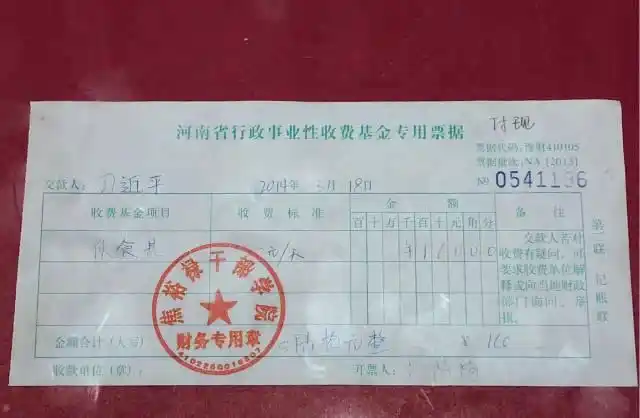 河南省行政事业性收费基金专用票据
付现
票据代码:豫财410105
票据批次:NA [2013]
№ 0541196
交款人: 习近平 2014年 3月 18日
收费基金项目 收费标准 金额 备注
百十万千百十元角分
伙食费 元/天 ¥ 1 6 0 0 0
交款人若对收费有疑问,可要求收费单位解释或向当地财政部门询问、举报。
第一联 记账联
焦裕禄干部学院
财务专用章
金额合计(大写) 陆拾元整 ¥ 160
收款单位(章): 开票人: